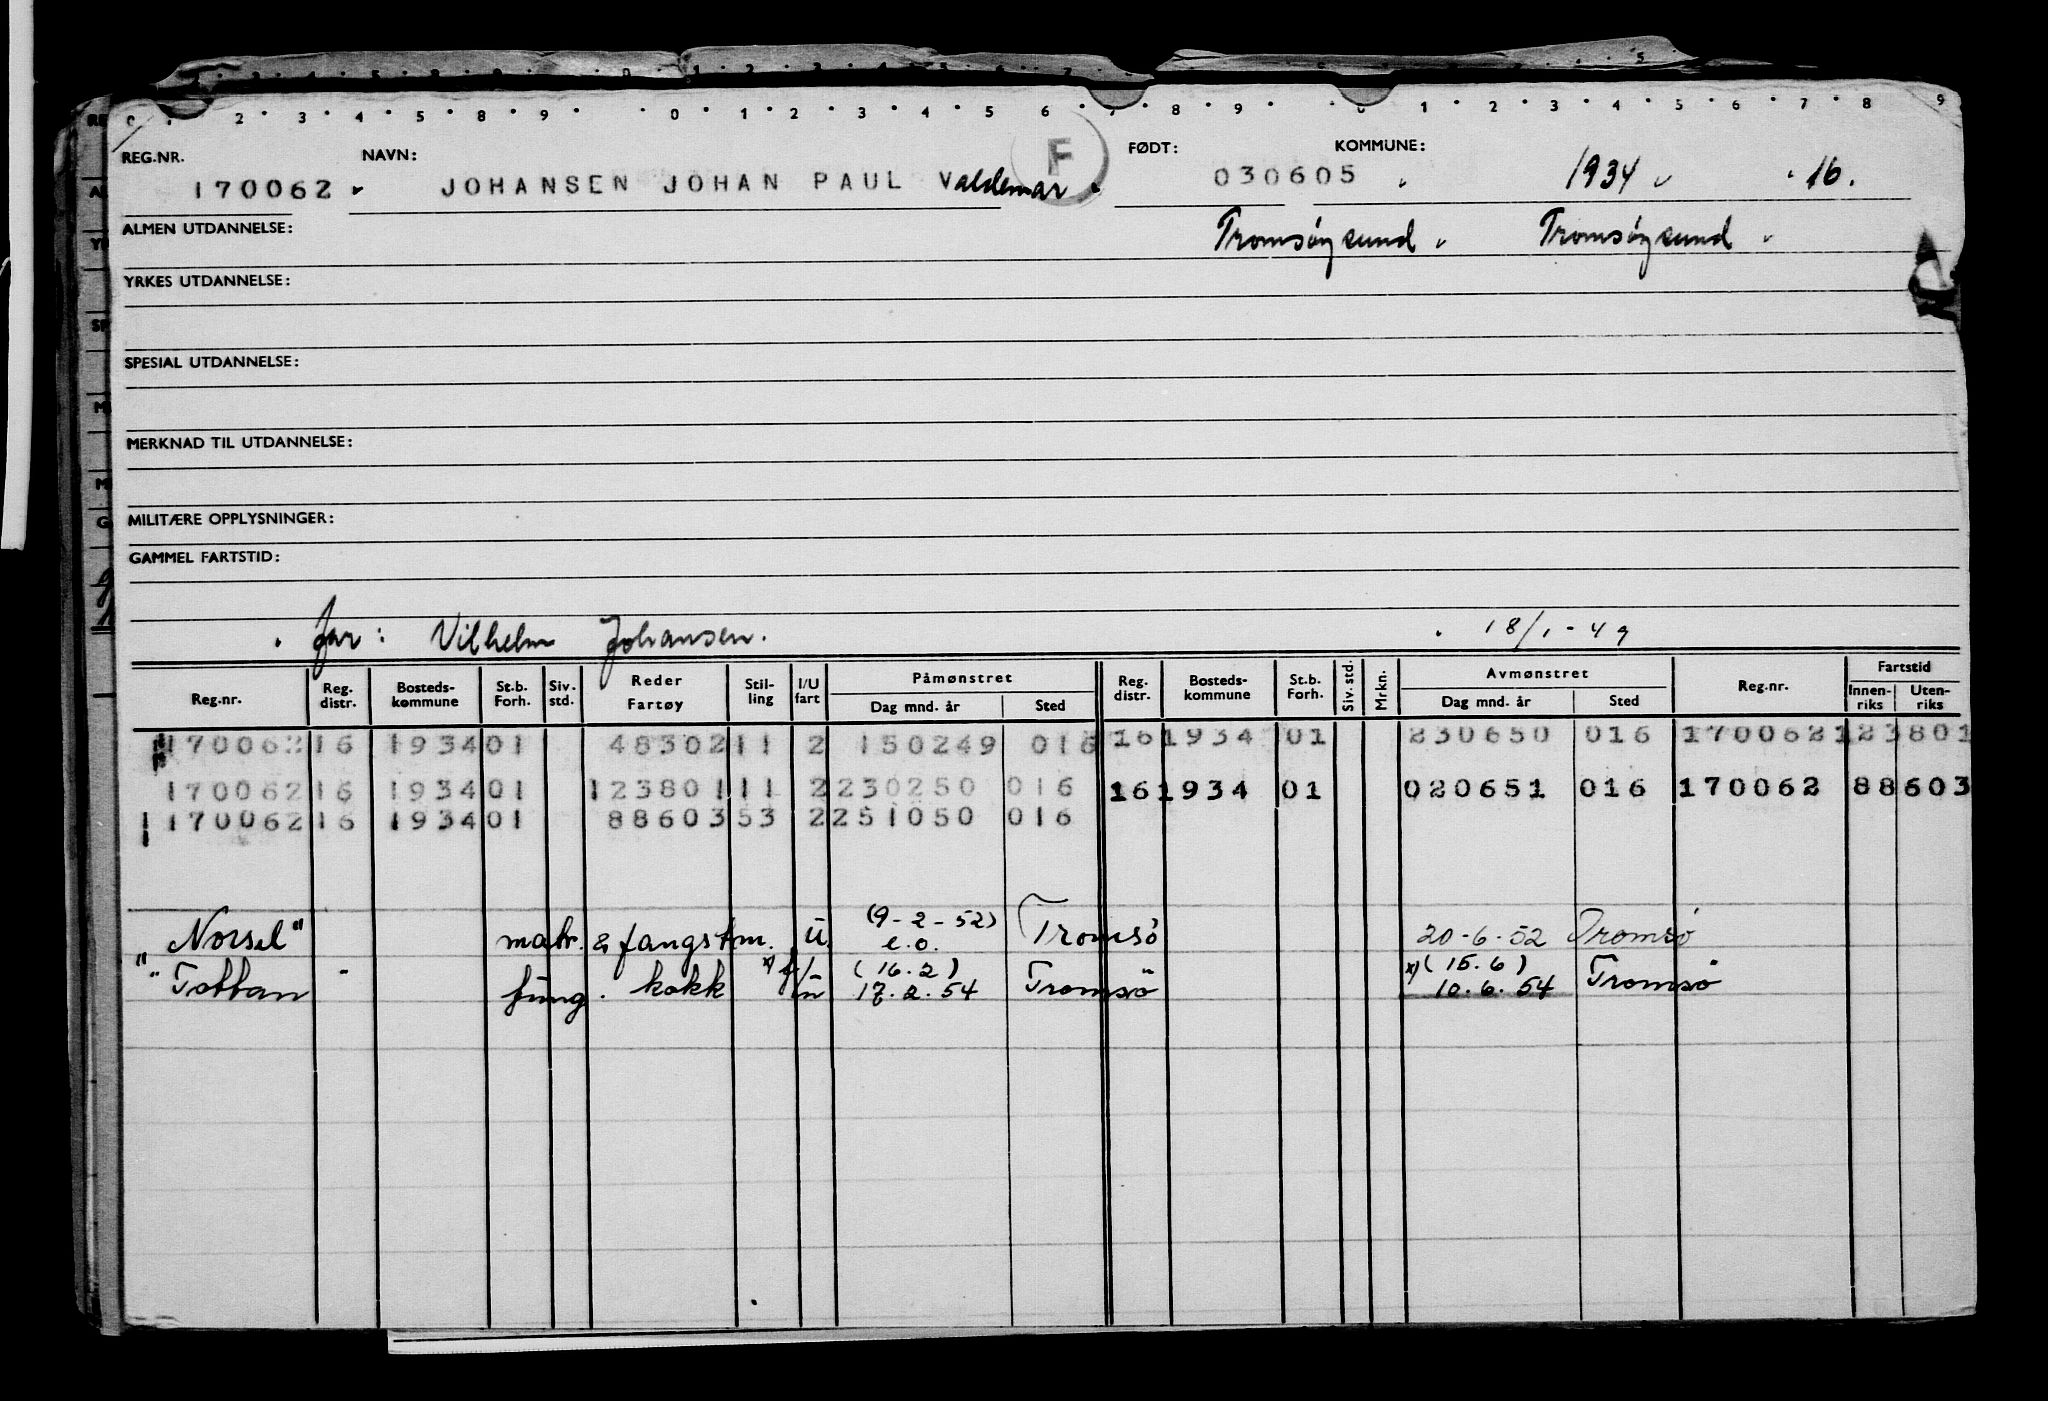 REG.NR. NAVN: F FØDT: KOMMUNE:
170062 JOHANSEN JOHAN PAUL Valdemar. 030605 1934 16.
ALMEN UTDANNELSE: Tromsöysund Tromsöysund
YRKES UTDANNELSE:
SPESIAL UTDANNELSE:
MERKNAD TIL UTDANNELSE:
MILITÆRE OPPLYSNINGER:
GAMMEL FARTSTID:
far: Vilhelm Johansen. 18/1-49
Reg.nr. Reg. distr. Bosteds-kommune St.b. Forh. Siv. std. Reder Fartøy Stil-ling I/U fart Påmønstret Dag mnd. år Sted Reg. distr. Bosteds-kommune St.b. Forh. Siv. std. Mrkn. Avmønstret Dag mnd. år Sted Reg.nr. Fartstid Innen-riks Uten-riks
170062 16 1934 01 48302 11 2 150249 016 16 1934 01 230650 016 170062 123801
170062 16 1934 01 123801 11 2 230250 016 16 1934 01 020651 016 170062 88603
170062 16 1934 01 88603 53 2 251050 016
"Norsel" matr. & fangstm. U. (9-2-52) e.o. Tromsö 20-6-52 Tromsö
"Tottan" fung. kokk (16.2) 17.2.54 Tromsö x) (15.6) 10.6.54 Tromsö